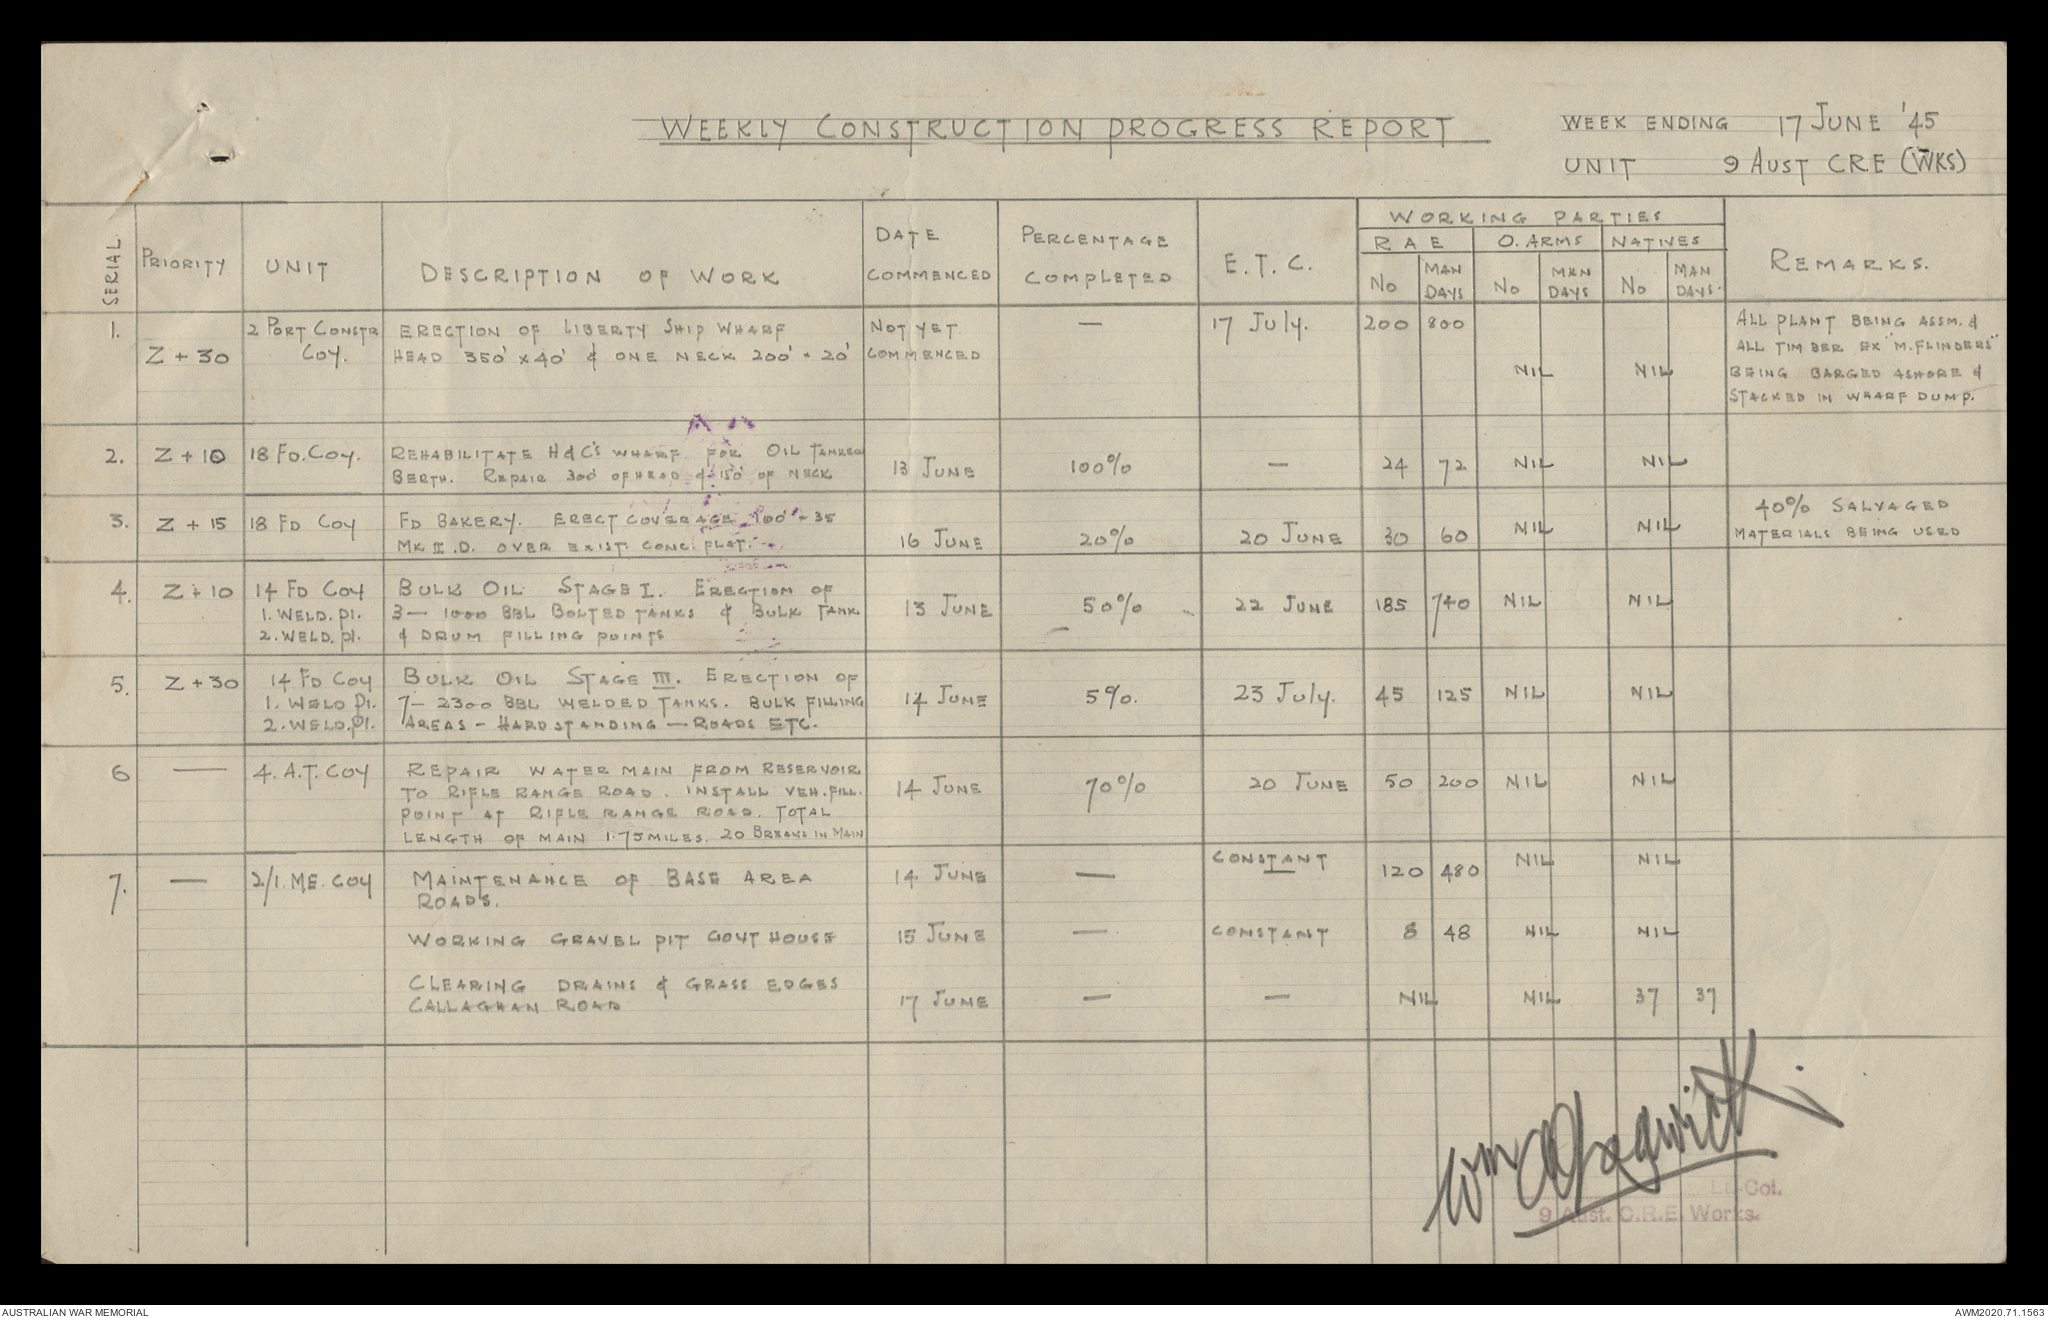 WEEKLY CONSTRUCTION PROGRESS REPORT
WEEK ENDING 17 JUNE '45
UNIT 9 AUST CRE (WKS)
SERIAL
PRIORITY
UNIT
DESCRIPTION OF WORK
DATE
COMMENCED
PERCENTAGE
COMPLETED
E.T.C.
WORKING PARTIES
RAE O. ARMS NATIVES
No MAN DAYS No MAN DAYS No MAN DAYS.
REMARKS.
1.
Z + 30
2 PORT CONSTR
COY.
ERECTION OF LIBERTY SHIP WHARF
HEAD 350' x 40' & ONE NECK 200' x 20'
NOT YET
COMMENCED
—
17 July.
200 800
NIL NIL
ALL PLANT BEING ASSM. &
ALL TIMBER EX "M. FLINDERS"
BEING BARGED ASHORE &
STACKED IN WHARF DUMP.
2. Z + 10 18 FD. COY.
REHABILITATE H & C's WHARF FOR OIL TANKER
BERTH. REPAIR 300' OF HEAD & 150' OF NECK
13 JUNE 100% — 24 72 NIL NIL
3. Z + 15 18 FD COY
FD BAKERY. ERECT COVERAGE 100' x 35
MK III.D. OVER EXIST. CONC. PLAT.
16 JUNE 20% 20 JUNE 30 60 NIL NIL
40% SALVAGED
MATERIALS BEING USED
4. Z + 10 14 FD COY
1. WELD. Pl.
2. WELD. Pl.
BULK OIL STAGE I. ERECTION OF
3 — 1000 BBL BOLTED TANKS & BULK TANK
& DRUM FILLING POINTS
13 JUNE 50% 22 JUNE 185 740 NIL NIL
5. Z + 30 14 FD COY
1. WELD Pl.
2. WELD. Pl.
BULK OIL STAGE III. ERECTION OF
7 — 2300 BBL WELDED TANKS. BULK FILLING
AREAS — HARDSTANDING — ROADS ETC.
14 JUNE 5%. 23 July. 45 125 NIL NIL
6 — 4. A.T. COY
REPAIR WATER MAIN FROM RESERVOIR
TO RIFLE RANGE ROAD. INSTALL VEH. FILL.
POINT AT RIFLE RANGE ROAD. TOTAL
LENGTH OF MAIN 1.75 MILES. 20 BREAKS IN MAIN
14 JUNE 70% 20 JUNE 50 200 NIL NIL
7. — 2/1. ME. COY
MAINTENANCE OF BASE AREA
ROADS.
14 JUNE — CONSTANT 120 480 NIL NIL
WORKING GRAVEL PIT GOVT HOUSE
15 JUNE — CONSTANT 8 48 NIL NIL
CLEARING DRAINS & GRASS EDGES
CALLAGHAN ROAD
17 JUNE — — NIL NIL 37 37
Lt-Col.
9 Aust. C.R.E. Works.
AUSTRALIAN WAR MEMORIAL
AWM2020.71.1563